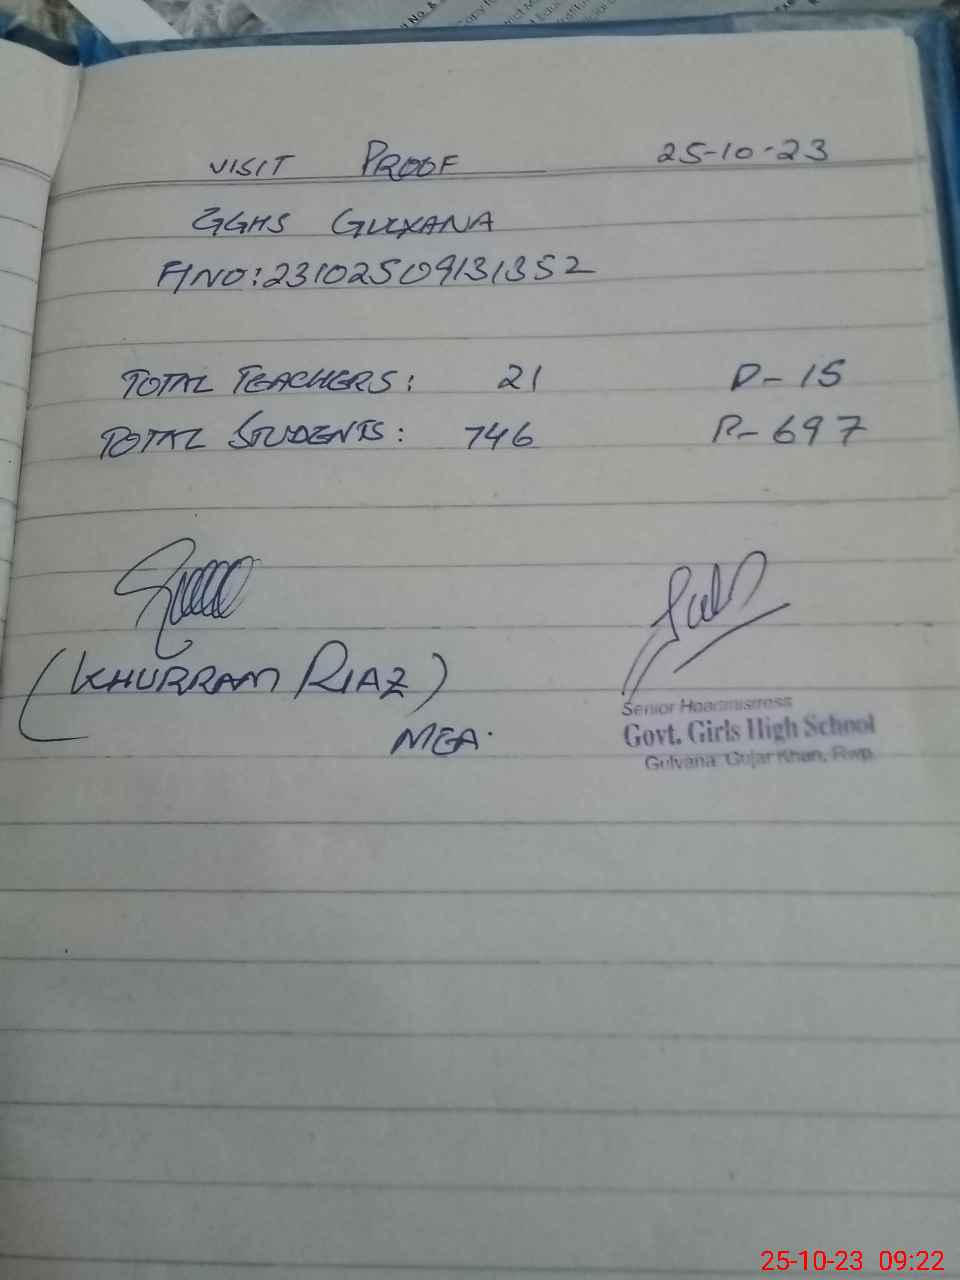 VISIT PROOF 25-10-23
GGHS GULYANA
F/NO: 23102509131352
TOTAL TEACHERS: 21 P-15
TOTAL STUDENTS: 746 P-697
(KHURRAM RIAZ)
MEA.
Senior Headmistress
Govt. Girls High School
Gulyana Gujar Khan, Rwp.
25-10-23 09:22